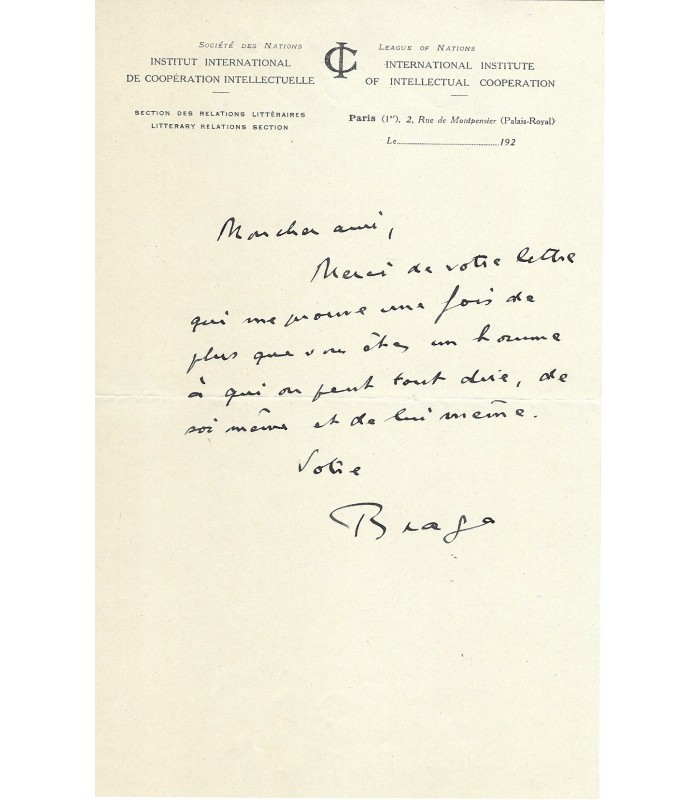 SOCIÉTÉ DES NATIONS
INSTITUT INTERNATIONAL
DE COOPÉRATION INTELLECTUELLE
SECTION DES RELATIONS LITTÉRAIRES
LITTERARY RELATIONS SECTION
IC
LEAGUE OF NATIONS
INTERNATIONAL INSTITUTE
OF INTELLECTUAL COOPERATION
Paris (1er), 2, Rue de Montpensier (Palais-Royal)
Le..........................................192
Mon cher ami,
Merci de votre lettre
qui me prouve une fois de
plus que vous êtes un homme
à qui on peut tout dire, de
soi même et de lui même.
Votre
Braga